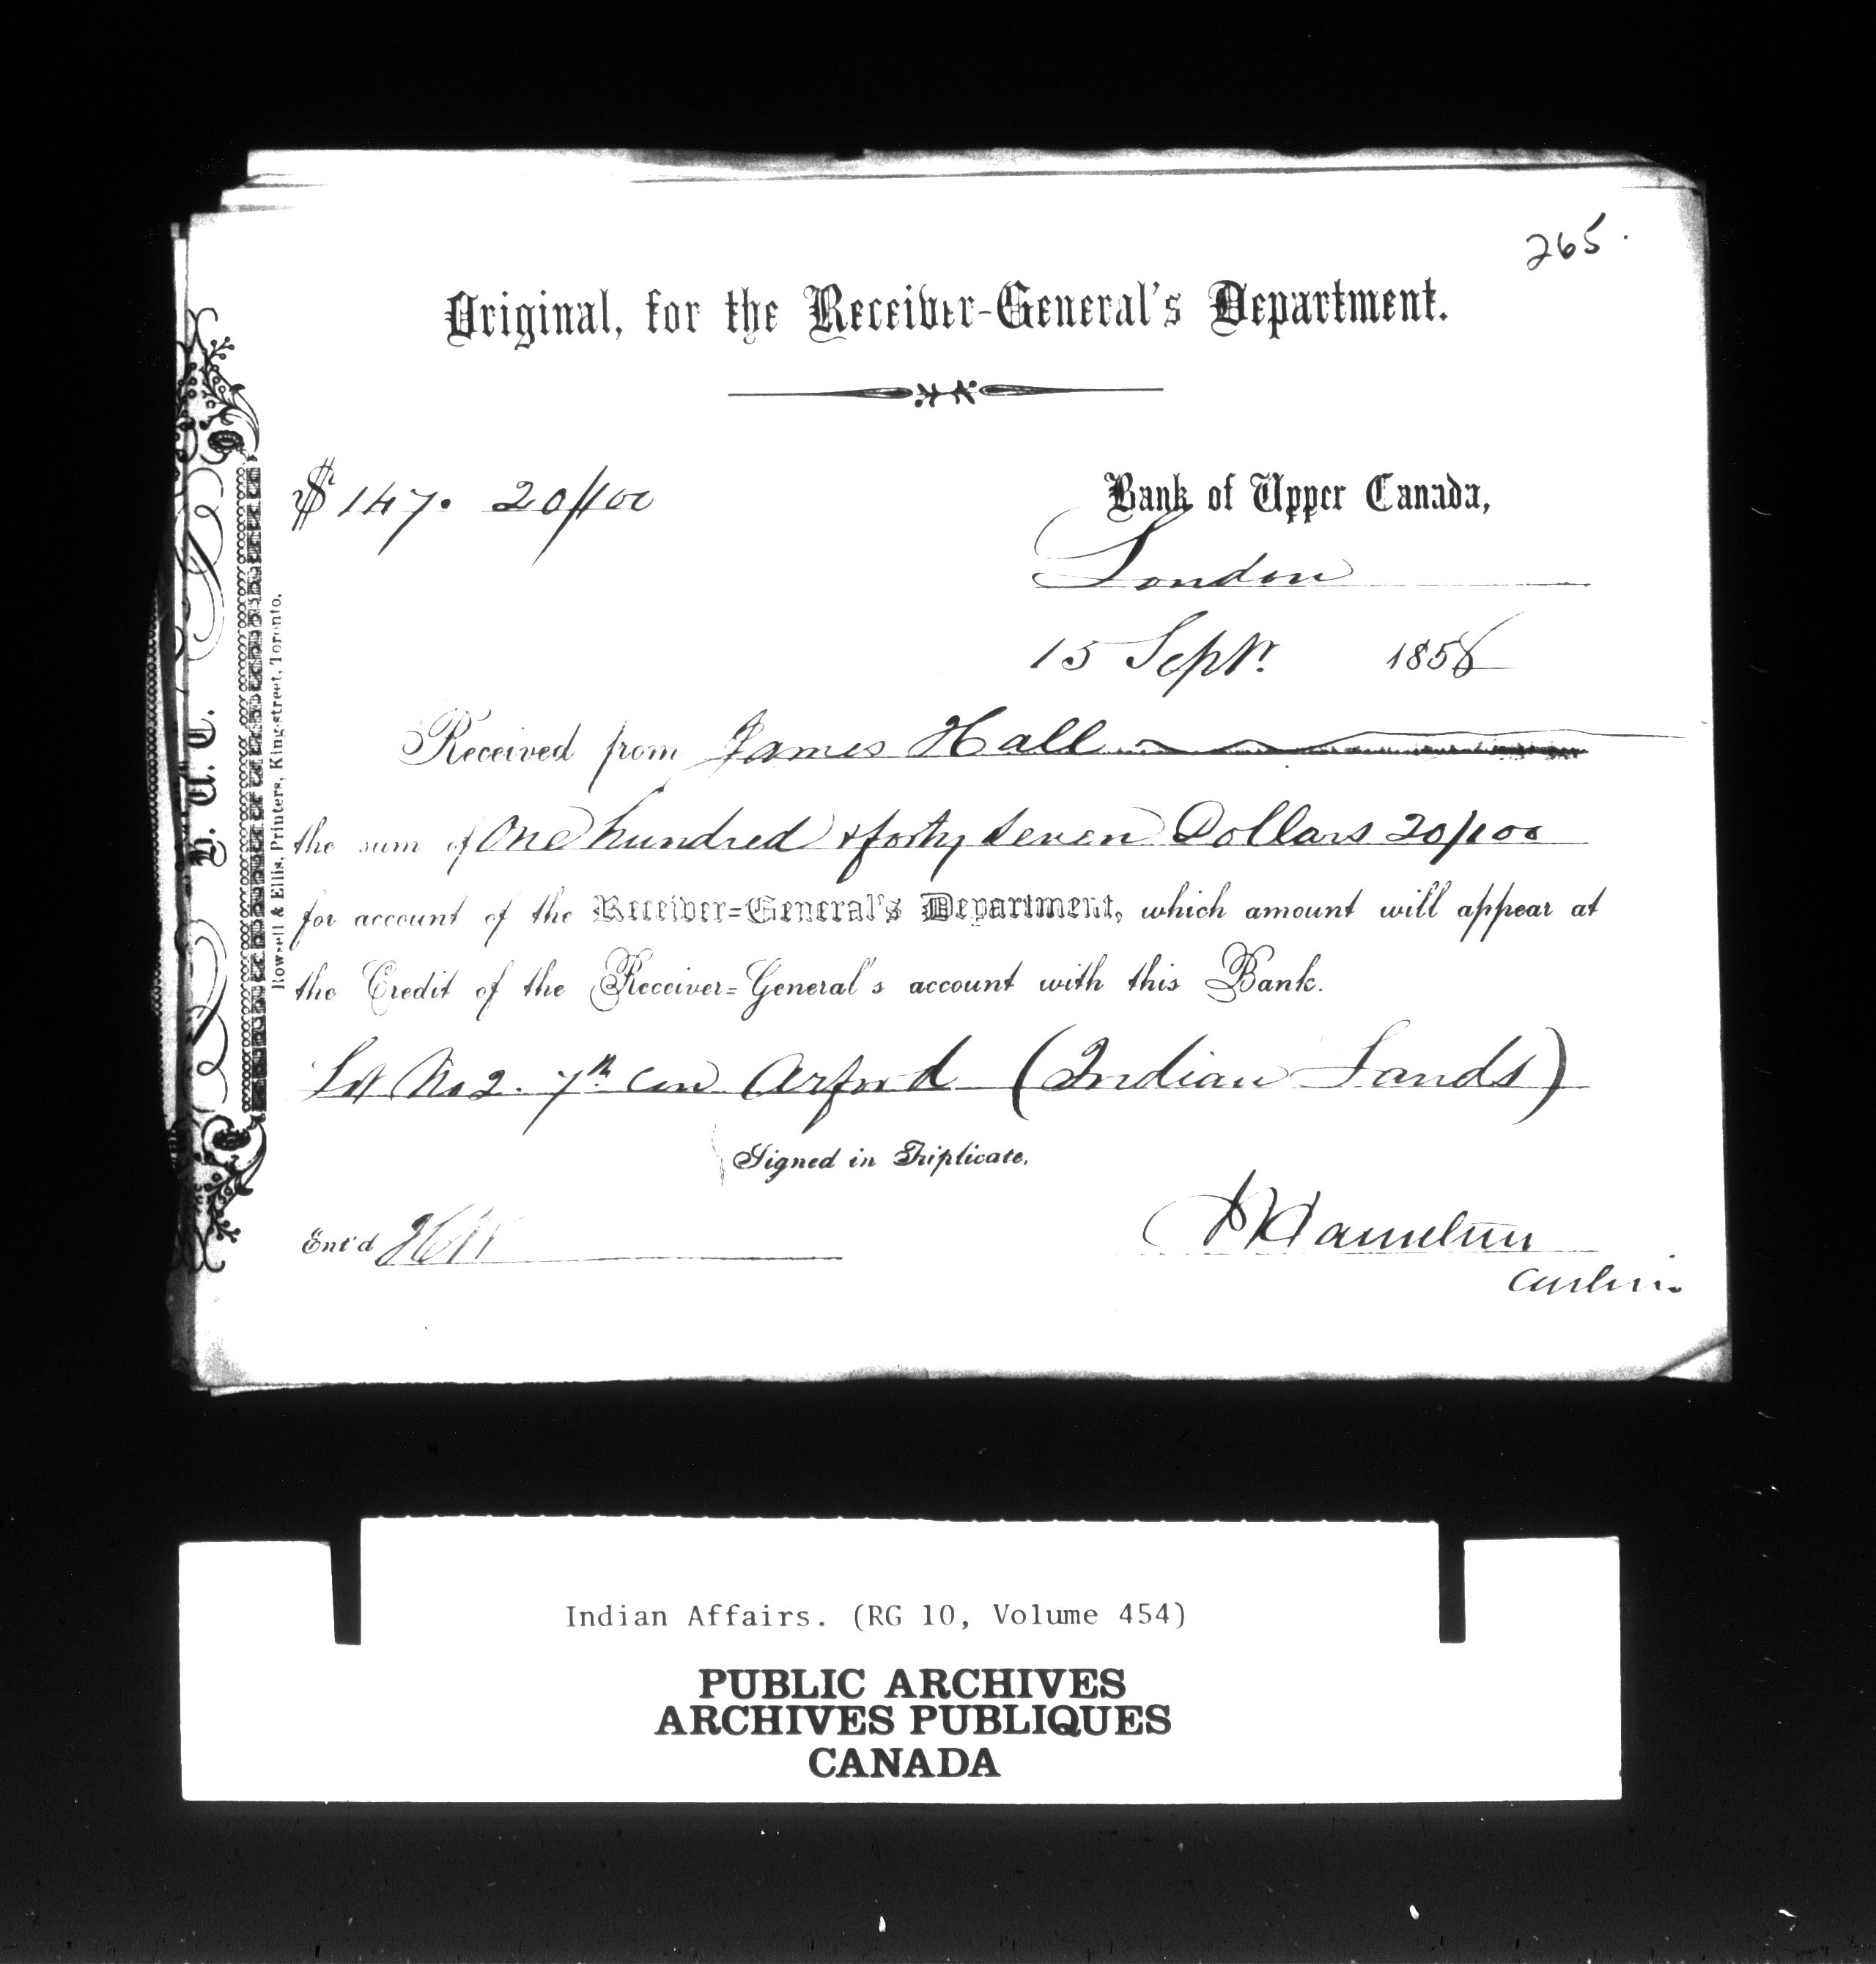 265.
Original, for the Receiver-General's Department.
$147. 20/100
Bank of Upper Canada,
London
15 Septr. 1858
Received from James Hall
the sum of One hundred & forty seven Dollars 20/100
for account of the Receiver=General's Department, which amount will appear at
the Credit of the Receiver=General's account with this Bank.
Lot No 2. 7th Con Arford (Indian Lands)
Signed in Triplicate.
Ent'd
Hamilton
B. U. C.
Rowsell & Ellis, Printers, King-street, Toronto.
Indian Affairs. (RG 10, Volume 454)
PUBLIC ARCHIVES
ARCHIVES PUBLIQUES
CANADA